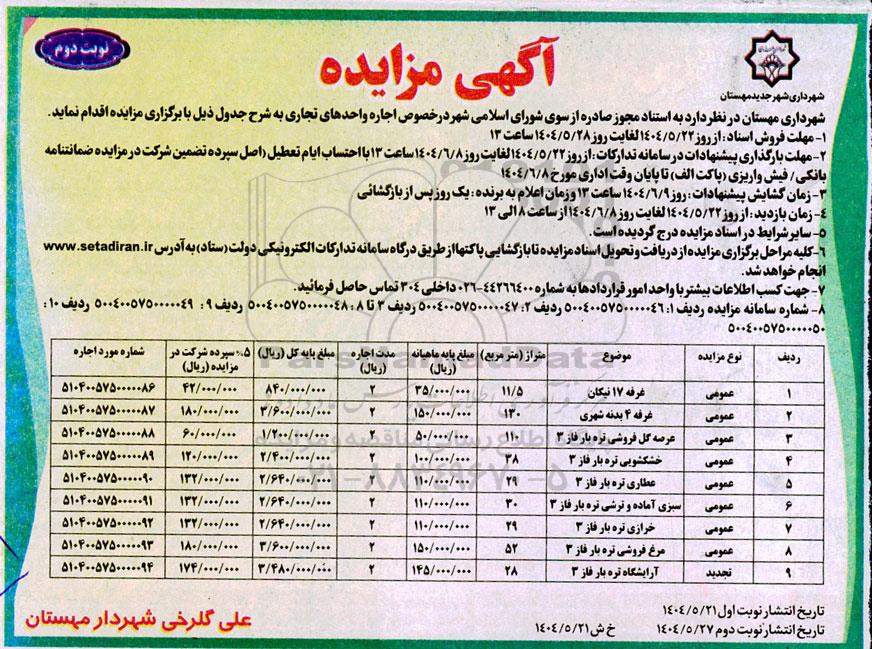 نوبت دوم
آگهی مزایده
شهرداری شهر جدید مهستان
شهرداری مهستان در نظر دارد به استناد مجوز صادره از سوی شورای اسلامی شهر درخصوص اجاره واحدهای تجاری به شرح جدول ذیل با برگزاری مزایده اقدام نماید.
۱- مهلت فروش اسناد : از روز ۱۴۰۴/۵/۲۲ لغایت روز ۱۴۰۴/۵/۲۸ ساعت ۱۳
۲- مهلت بارگذاری پیشنهادات در سامانه تدارکات : از روز ۱۴۰۴/۵/۲۲ لغایت روز ۱۴۰۴/۶/۸ ساعت ۱۳ با احتساب ایام تعطیل (اصل سپرده تضمین شرکت در مزایده ضمانتنامه
بانکی / فیش واریزی (پاکت الف) تا پایان وقت اداری مورخ ۱۴۰۴/۶/۸
۳- زمان گشایش پیشنهادات : روز ۱۴۰۴/۶/۹ ساعت ۱۳ و زمان اعلام به برنده : یک روز پس از بازگشائی
۴- زمان بازدید : از روز ۱۴۰۴/۵/۲۲ لغایت روز ۱۴۰۴/۶/۸ از ساعت ۸ الی ۱۳
۵- سایر شرایط در اسناد مزایده درج گردیده است.
۶- کلیه مراحل برگزاری مزایده از دریافت و تحویل اسناد مزایده تا بازگشایی پاکتها از طریق درگاه سامانه تدارکات الکترونیکی دولت (ستاد) به آدرس www.setadiran.ir
انجام خواهد شد.
۷- جهت کسب اطلاعات بیشتر با واحد امور قراردادها به شماره ۴۴۲۶۶۴۰۰-۰۲۶ داخلی ۳۰۴ تماس حاصل فرمائید.
۸- شماره سامانه مزایده ردیف ۱: ۵۰۰۴۰۰۵۷۵۰۰۰۰۰۴۶ ردیف ۲: ۵۰۰۴۰۰۵۷۵۰۰۰۰۰۴۷ ردیف ۳ تا ۸ : ۵۰۰۴۰۰۵۷۵۰۰۰۰۰۴۸ ردیف ۹ : ۵۰۰۴۰۰۵۷۵۰۰۰۰۰۴۹ ردیف ۱۰ :
۵۰۰۴۰۰۵۷۵۰۰۰۰۰۵۰
ردیف نوع مزایده موضوع متراژ (متر مربع) مبلغ پایه ماهیانه (ریال) مدت اجاره (ریال) مبلغ پایه کل (ریال) ۵% سپرده شرکت در مزایده (ریال) شماره مورد اجاره
۱ عمومی غرفه ۱۷ نیکان ۱۱/۵ ۳۵/۰۰۰/۰۰۰ ۲ ۸۴۰/۰۰۰/۰۰۰ ۴۲/۰۰۰/۰۰۰ ۵۱۰۴۰۰۵۷۵۰۰۰۰۰۸۶
۲ عمومی غرفه ۴ بدنه شهری ۱۳۰ ۱۵۰/۰۰۰/۰۰۰ ۲ ۳/۶۰۰/۰۰۰/۰۰۰ ۱۸۰/۰۰۰/۰۰۰ ۵۱۰۴۰۰۵۷۵۰۰۰۰۰۸۷
۳ عمومی عرصه گل فروشی تره بار فاز ۳ ۱۱۰ ۵۰/۰۰۰/۰۰۰ ۲ ۱/۲۰۰/۰۰۰/۰۰۰ ۶۰/۰۰۰/۰۰۰ ۵۱۰۴۰۰۵۷۵۰۰۰۰۰۸۸
۴ عمومی خشکشویی تره بار فاز ۳ ۳۸ ۱۰۰/۰۰۰/۰۰۰ ۲ ۲/۴۰۰/۰۰۰/۰۰۰ ۱۲۰/۰۰۰/۰۰۰ ۵۱۰۴۰۰۵۷۵۰۰۰۰۰۸۹
۵ عمومی عطاری تره بار فاز ۳ ۲۹ ۱۱۰/۰۰۰/۰۰۰ ۲ ۲/۶۴۰/۰۰۰/۰۰۰ ۱۳۲/۰۰۰/۰۰۰ ۵۱۰۴۰۰۵۷۵۰۰۰۰۰۹۰
۶ عمومی سبزی آماده و ترشی تره بار فاز ۳ ۳۰ ۱۱۰/۰۰۰/۰۰۰ ۲ ۲/۶۴۰/۰۰۰/۰۰۰ ۱۳۲/۰۰۰/۰۰۰ ۵۱۰۴۰۰۵۷۵۰۰۰۰۰۹۱
۷ عمومی خرازی تره بار فاز ۳ ۲۹ ۱۱۰/۰۰۰/۰۰۰ ۲ ۲/۶۴۰/۰۰۰/۰۰۰ ۱۳۲/۰۰۰/۰۰۰ ۵۱۰۴۰۰۵۷۵۰۰۰۰۰۹۲
۸ عمومی مرغ فروشی تره بار فاز ۳ ۵۲ ۱۵۰/۰۰۰/۰۰۰ ۲ ۳/۶۰۰/۰۰۰/۰۰۰ ۱۸۰/۰۰۰/۰۰۰ ۵۱۰۴۰۰۵۷۵۰۰۰۰۰۹۳
۹ تجدید آرایشگاه تره بار فاز ۳ ۲۸ ۱۴۵/۰۰۰/۰۰۰ ۲ ۳/۴۸۰/۰۰۰/۰۰۰ ۱۷۴/۰۰۰/۰۰۰ ۵۱۰۴۰۰۵۷۵۰۰۰۰۰۹۴
تاریخ انتشار نوبت اول ۱۴۰۴/۵/۲۱
تاریخ انتشار نوبت دوم ۱۴۰۴/۵/۲۷ خ ش ۱۴۰۴/۵/۲۱
علی گلرخی شهردار مهستان
ParsNamadData
۰۲۱-۸۸۳۴۹۶۷۰-۵